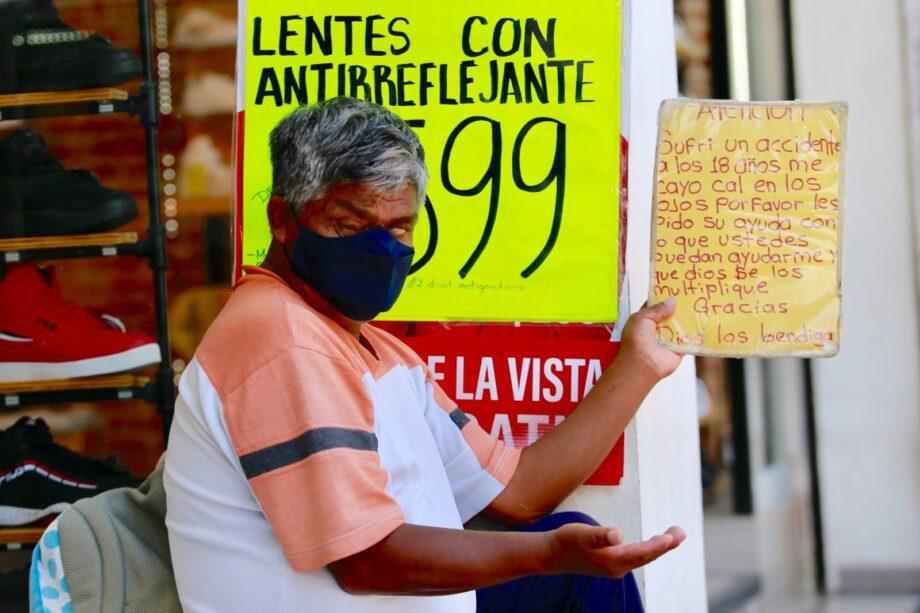 LENTES CON
ANTIRREFLEJANTE
599
1/2 diopt astigmatismo
E LA VISTA
ATIS
FILA
ATENCIÓN
Sufri un accidente
a los 18 años me
cayo cal en los
ojos Porfavor les
Pido su ayuda con
lo que ustedes
puedan ayudarme y
que dios se los
multiplique
Gracias
Dios los bendiga